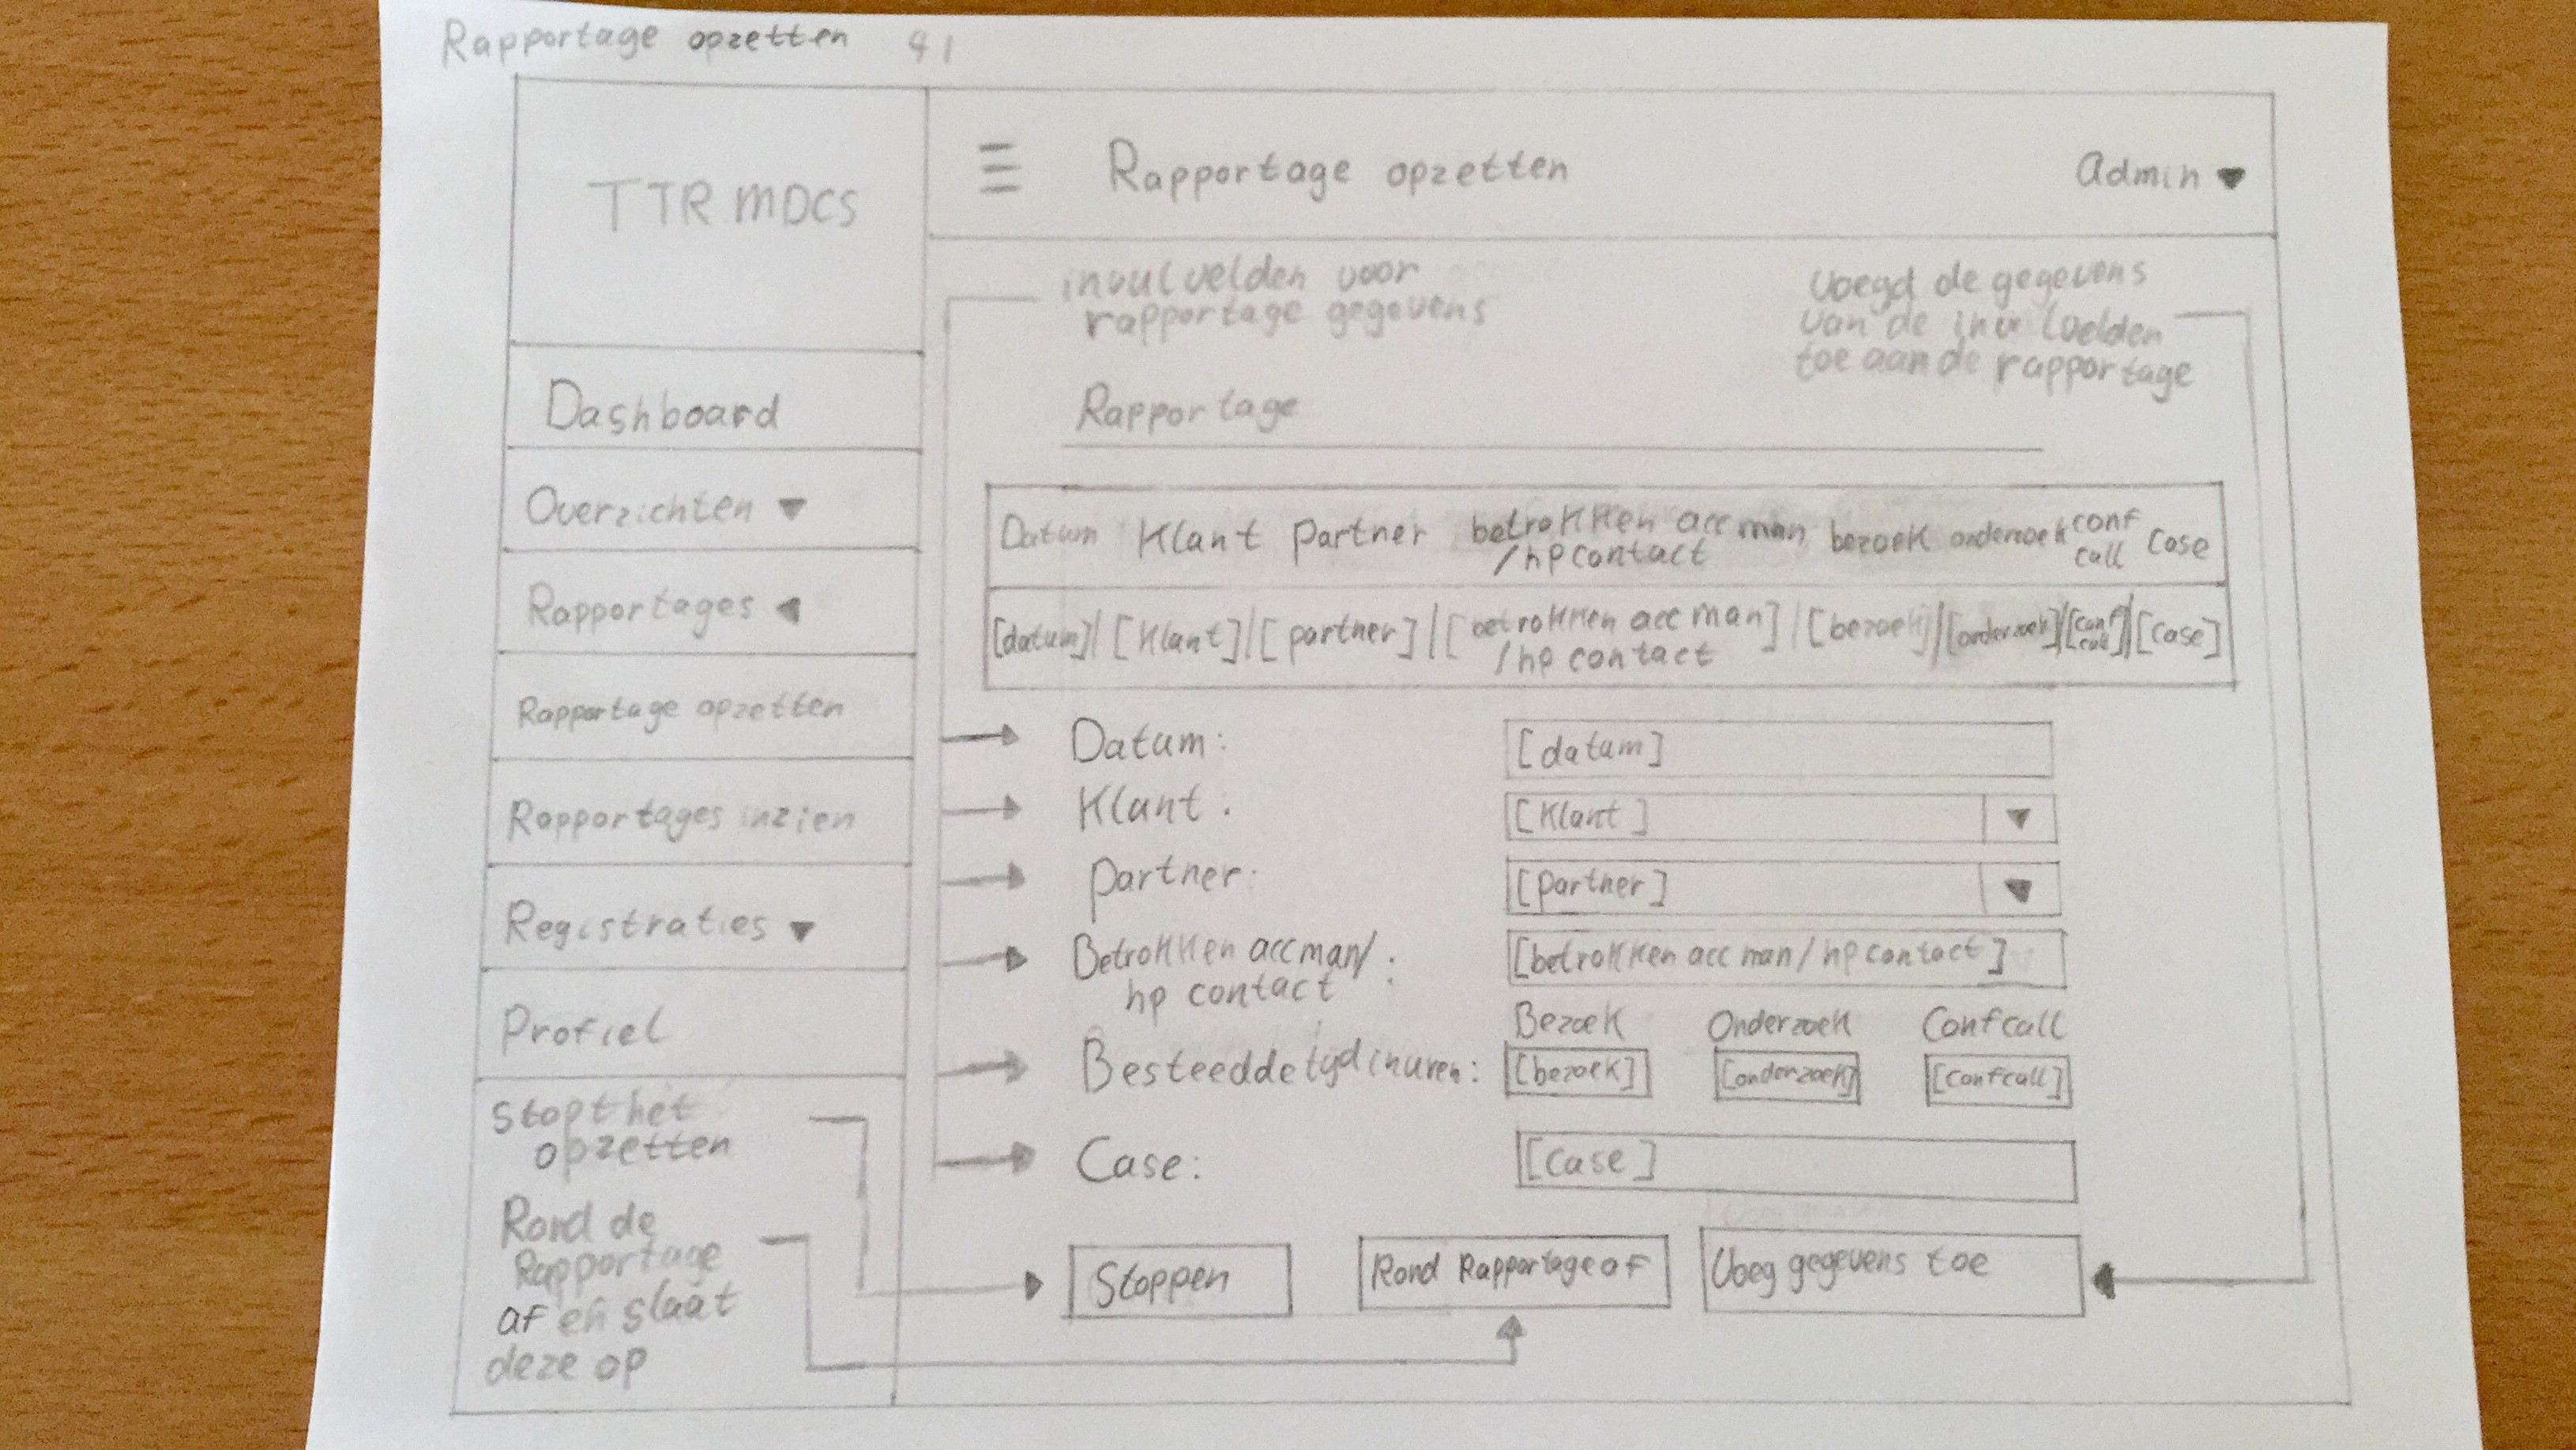 Rapportage opzetten 41
TTR MDCS
Rapportage opzetten
Admin
Dashboard
Overzichten
Rapportages
Rapportage opzetten
Rapportages inzien
Registraties
Profiel
Stopt het
opzetten
Rond de
Rapportage
af en slaat
deze op
invulvelden voor
rapportage gegevens
Voegd de gegevens
van de invulvelden
toe aan de rapportage
Rapportage
Datum Klant Partner betrokken acc man bezoek onderzoek conf Case
/hp contact call
[datum]/[Klant]/[partner]/[betrokken acc man]/[bezoek]/[onderzoek]/[conf]/[Case]
/hp contact call
Datum: [datum]
Klant: [Klant]
Partner: [Partner]
Betrokken acc man/ : [betrokken acc man/hp contact]
hp contact
Bezoek Onderzoek Confcall
Besteedde tijd in uren: [bezoek] [onderzoek] [Confcall]
Case: [Case]
Stoppen Rond Rapportage af Voeg gegevens toe